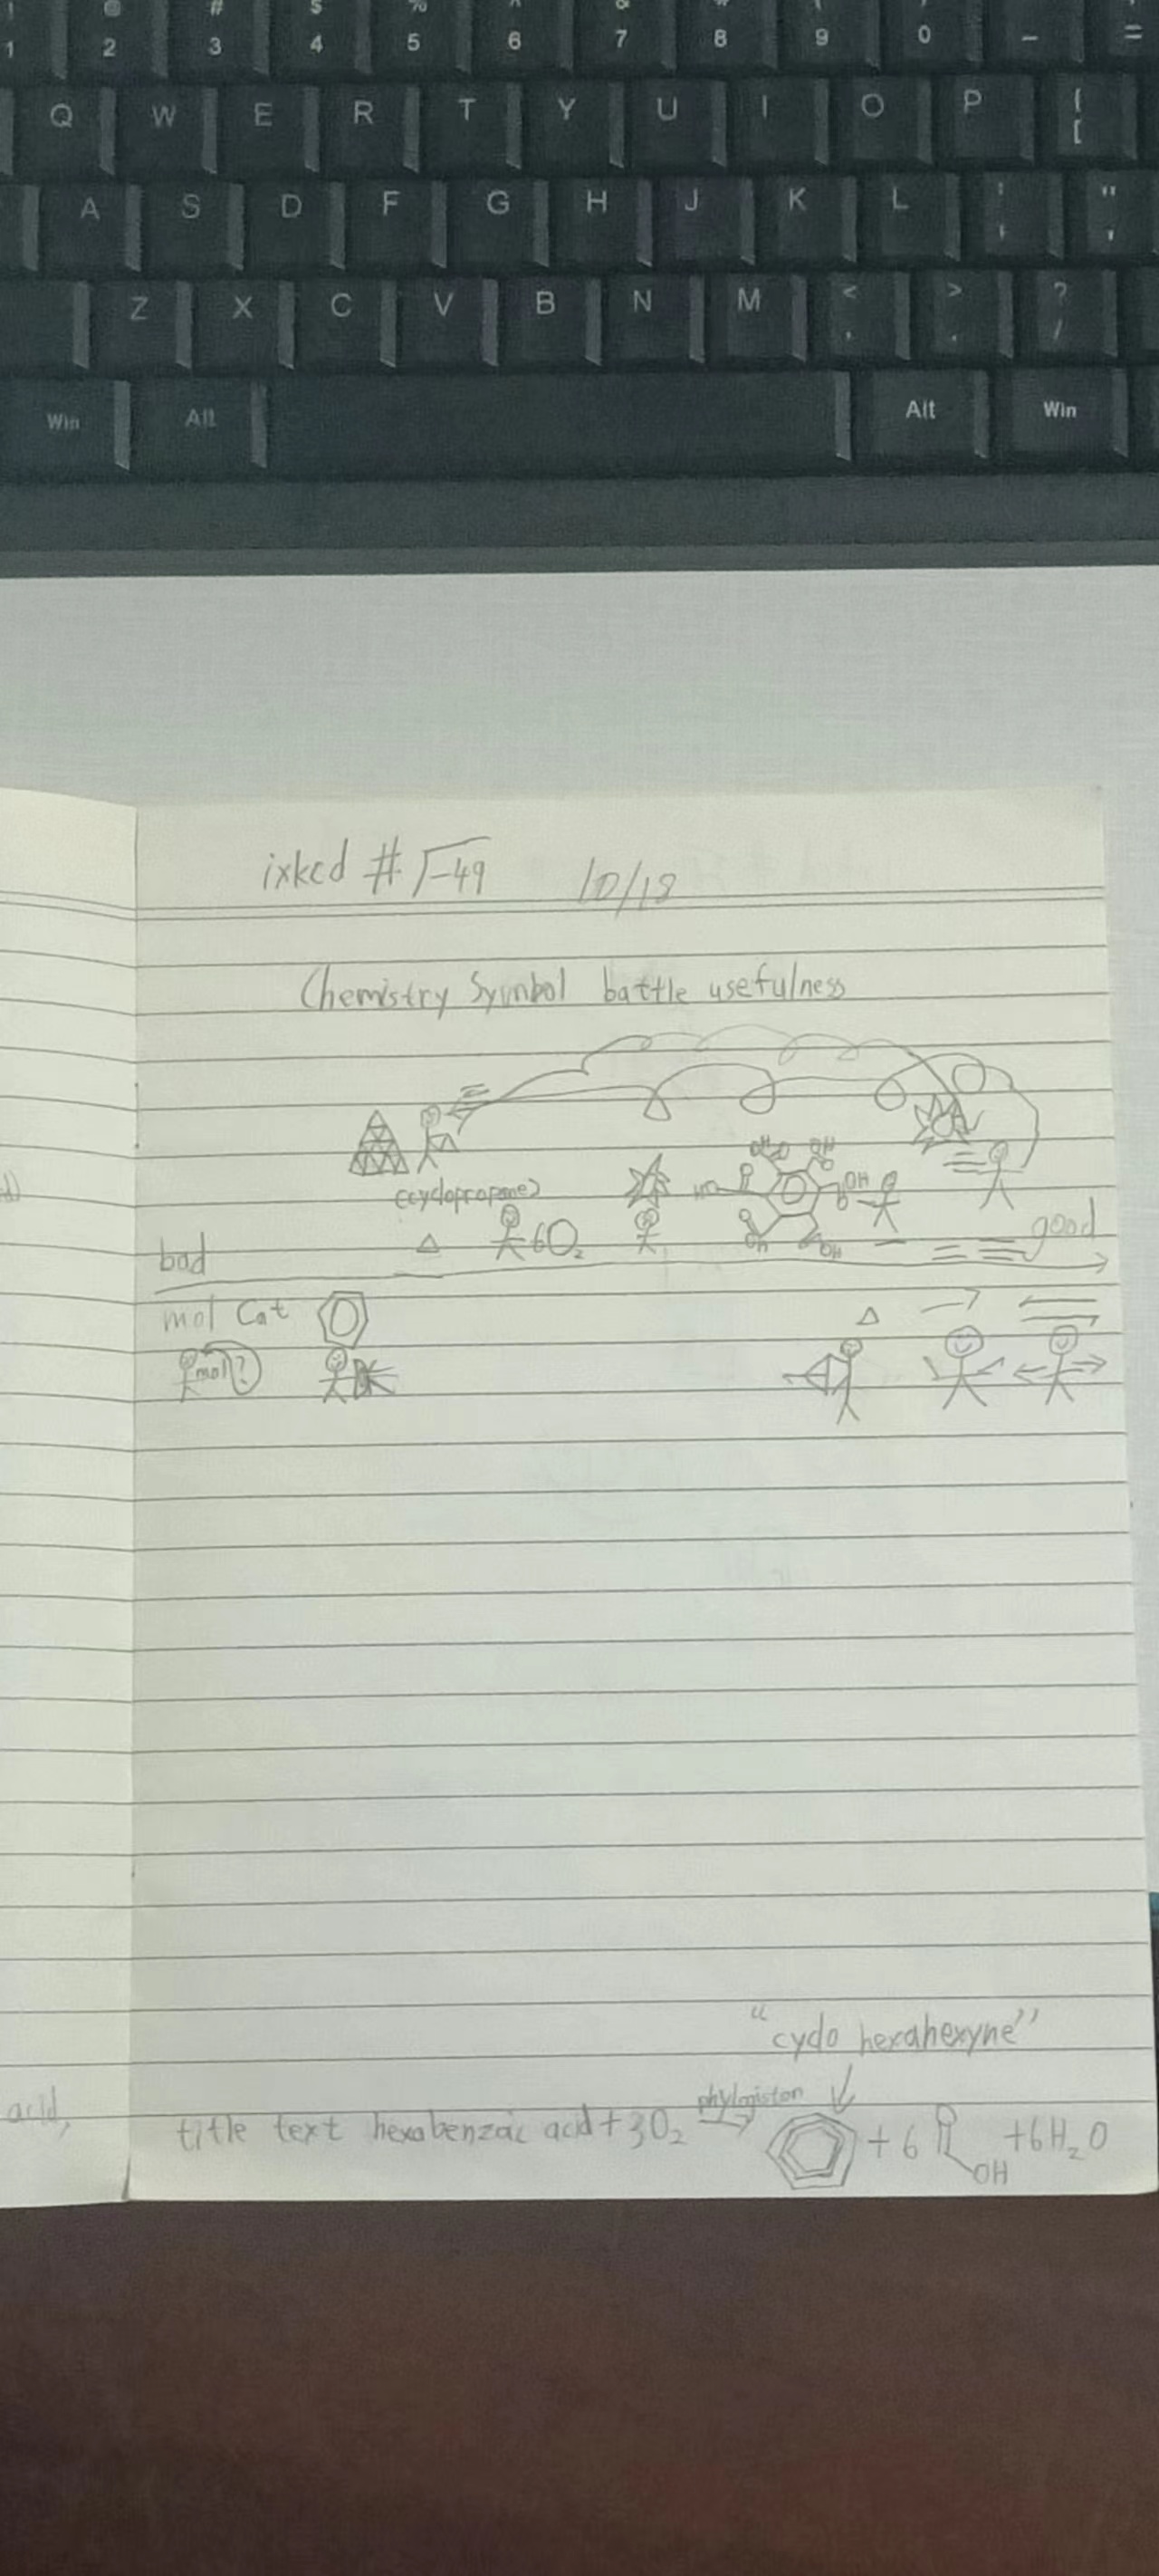 ! @ # $ % ^ & * ( ) _ +
1 2 3 4 5 6 7 8 9 0 - =
Q W E R T Y U I O P { [
A S D F G H J K L : ; " '
Z X C V B N M < , > . ? /
Win Alt Alt Win
ixkcd # √-49 10/18
Chemistry Symbol battle usefulness
(cyclopropane)
OH OH
HO OH
6O₂
OH OH
bad good
mol Cat
mol?
"cyclo hexahexyne"
phylogiston
acid,
title text hexabenzoic acid + 3O₂ → + 6 OH + 6H₂O